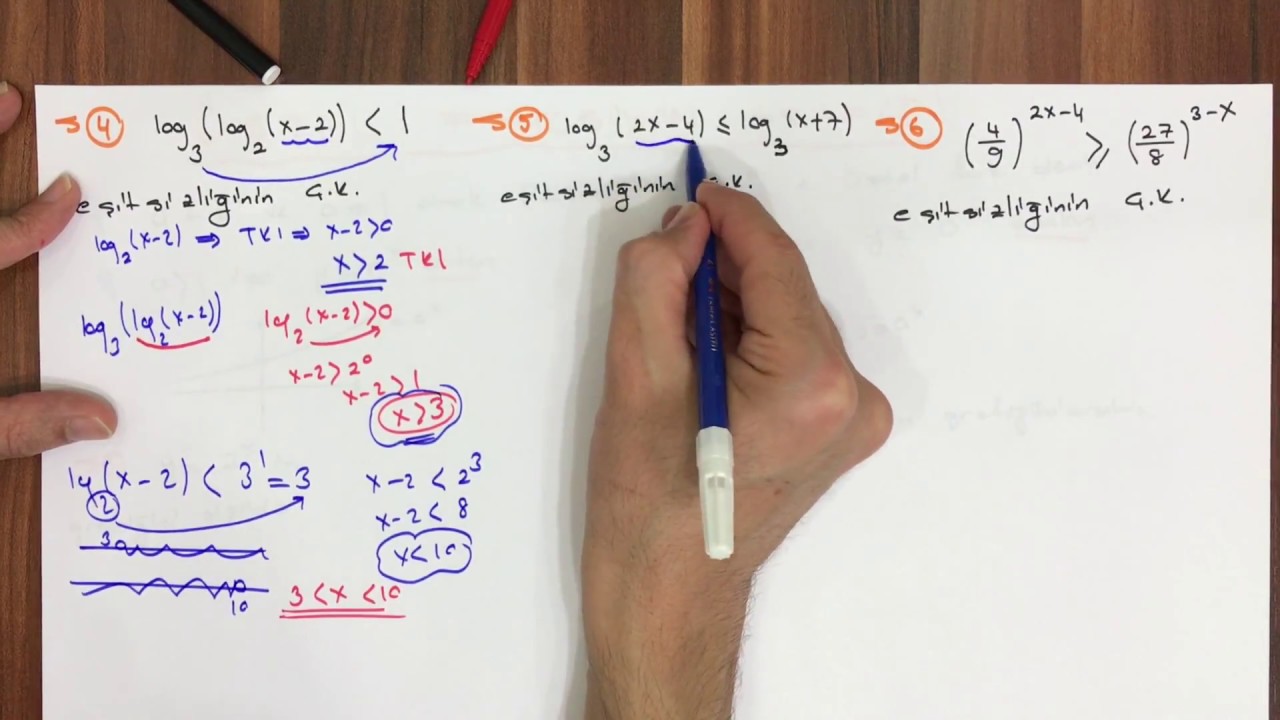 → ④ log₃(log₂(x-2)) < 1
eşitsizliğinin Ç.K.
log₂(x-2) ⇒ TKI ⇒ x-2>0
x>2 TKI
log₃(log₂(x-2)) log₂(x-2)>0
x-2>2⁰
x-2>1
x>3
log₂(x-2) < 3¹=3
x-2 < 2³
x-2 < 8
x<10
3
10
3<x<10
→ ⑤ log₃(2x-4) ≤ log₃(x+7)
eşitsizliğinin Ç.K.
→ ⑥ (4/9)^(2x-4) ≥ (27/8)^(3-x)
eşitsizliğinin Ç.K.